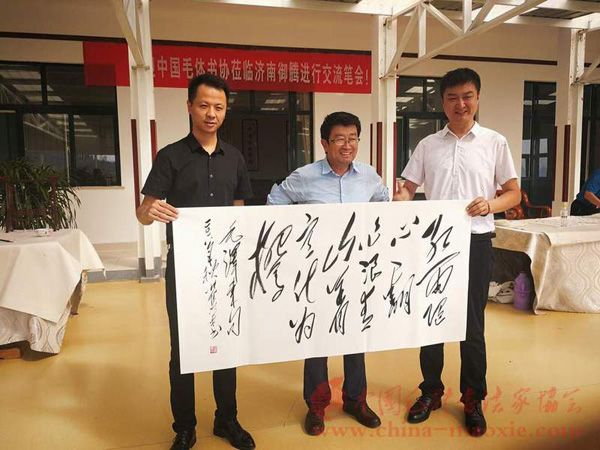 中国毛体书协莅临济南御腾进行交流笔会!
红雨随
心翻
作浪青
山着
意化为
桥
毛泽东句
中國毛体书法家協会
www.china-maoxie.com